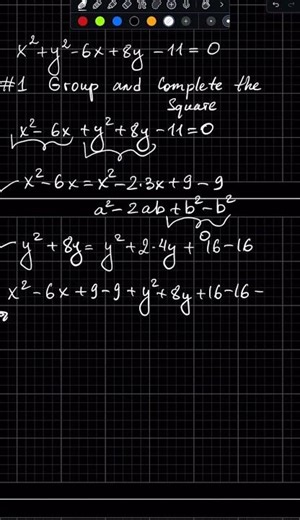 x² + y² - 6x + 8y - 11 = 0
#1 Group and Complete the
Square
x² - 6x + y² + 8y - 11 = 0
x² - 6x = x² - 2·3x + 9 - 9
a² - 2ab + b² - b²
0
y² + 8y = y² + 2·4y + 16 - 16
x² - 6x + 9 - 9 + y² + 8y + 16 - 16 -